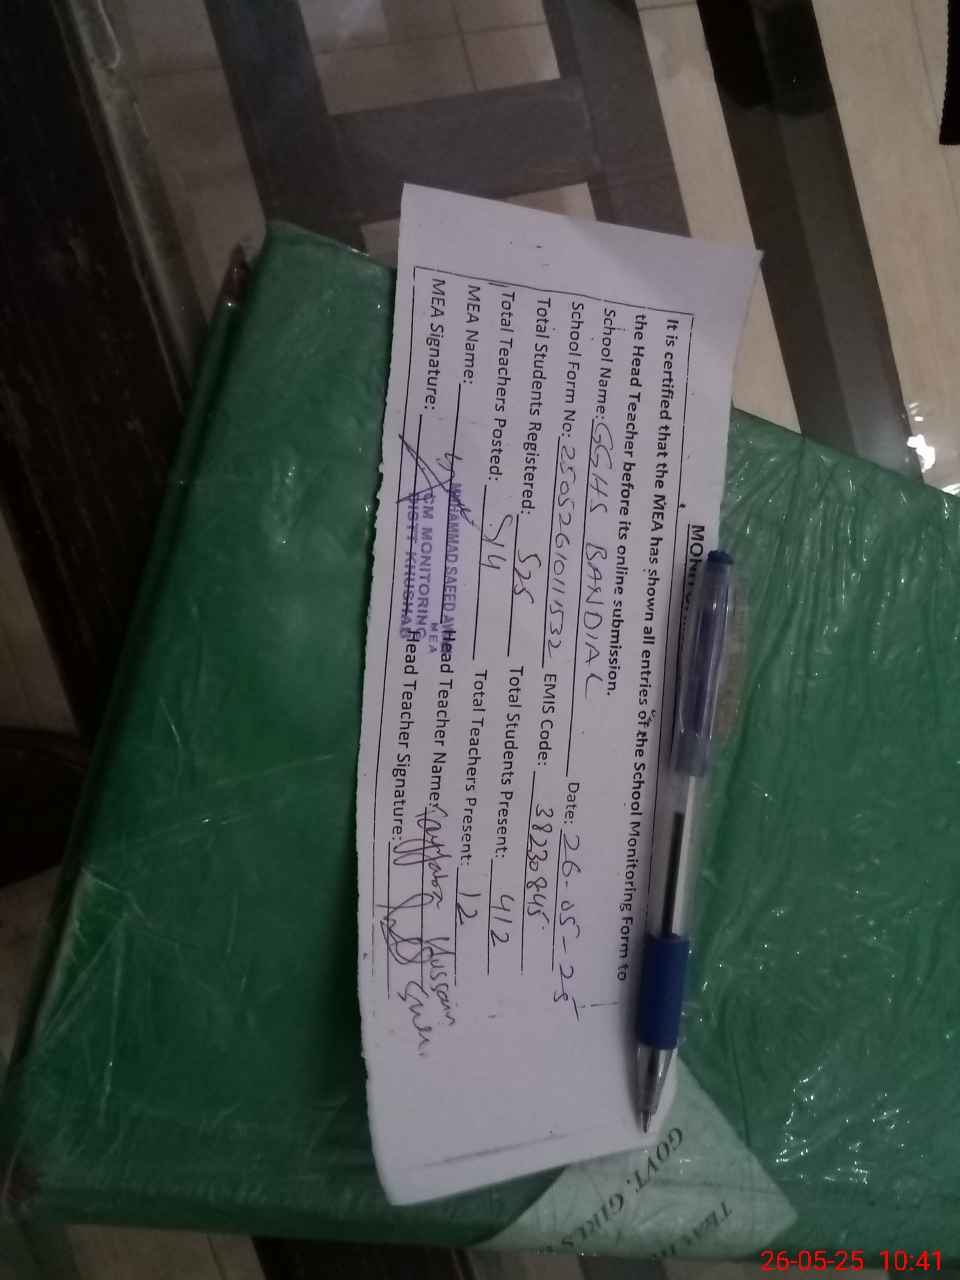 It is certified that the MEA has shown all entries of the School Monitoring Form to
the Head Teacher before its online submission.
School Name: GGHS BANDIAL Date: 26-05-25
School Form No: 25052610111532 EMIS Code: 38230845
Total Students Registered: 525 Total Students Present: 412
Total Teachers Posted: 14 Total Teachers Present: 12
MEA Name: MUHAMMAD SAEED Head Teacher Name: Hussain
MEA
CM MONITORING
MEA Signature: DISTT KHUSHAB Head Teacher Signature:
GOVT. GIRLS
26-05-25 10:41